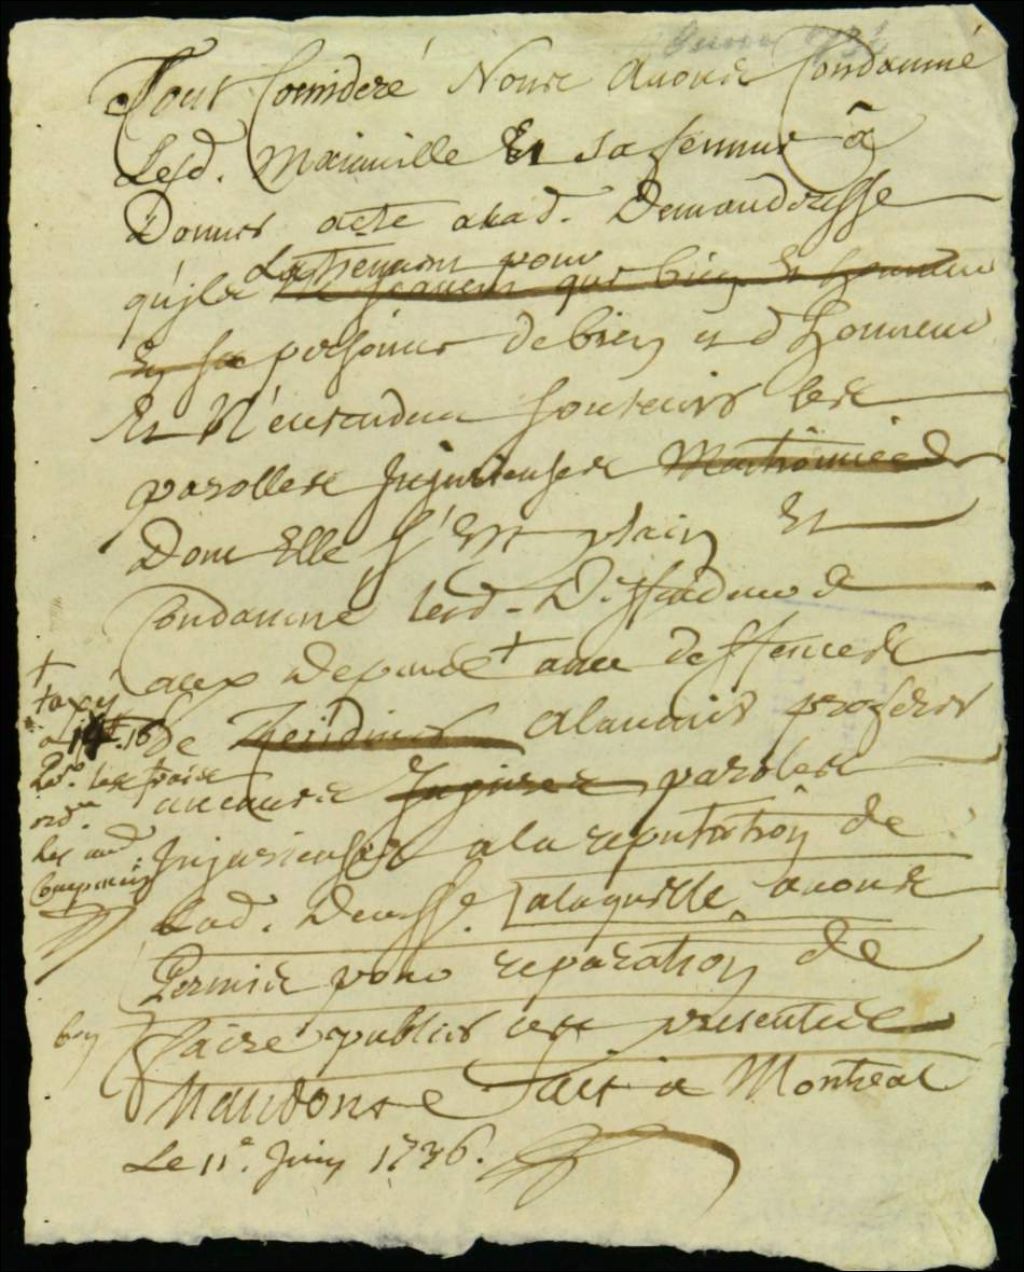 Tout Consideré Nous Avons Condamné
Led. Mainville Et sa femme a
Donner acte alad. Demanderesse
Latiennent pour
qu'ils que bien Et honneur
En sa personne de bien et d'honneur
Et N'entendre soutenir les
parolles Injurieuses
Dont Elle s'Est plain Et
Condamne lesd. Deffendeurs
aux Depends + avec deffences
de Residiver alavenir proferer
aucunes Injures paroles
Injurieuses ala reputation de
Lad. Demsse. [alaquelle avons
Permis pour reparation de
faire publier ces presentes
Mandons &c fait a Montreal
Le 11e. Juin 1736.
+
taxés
les frais
compris
bon